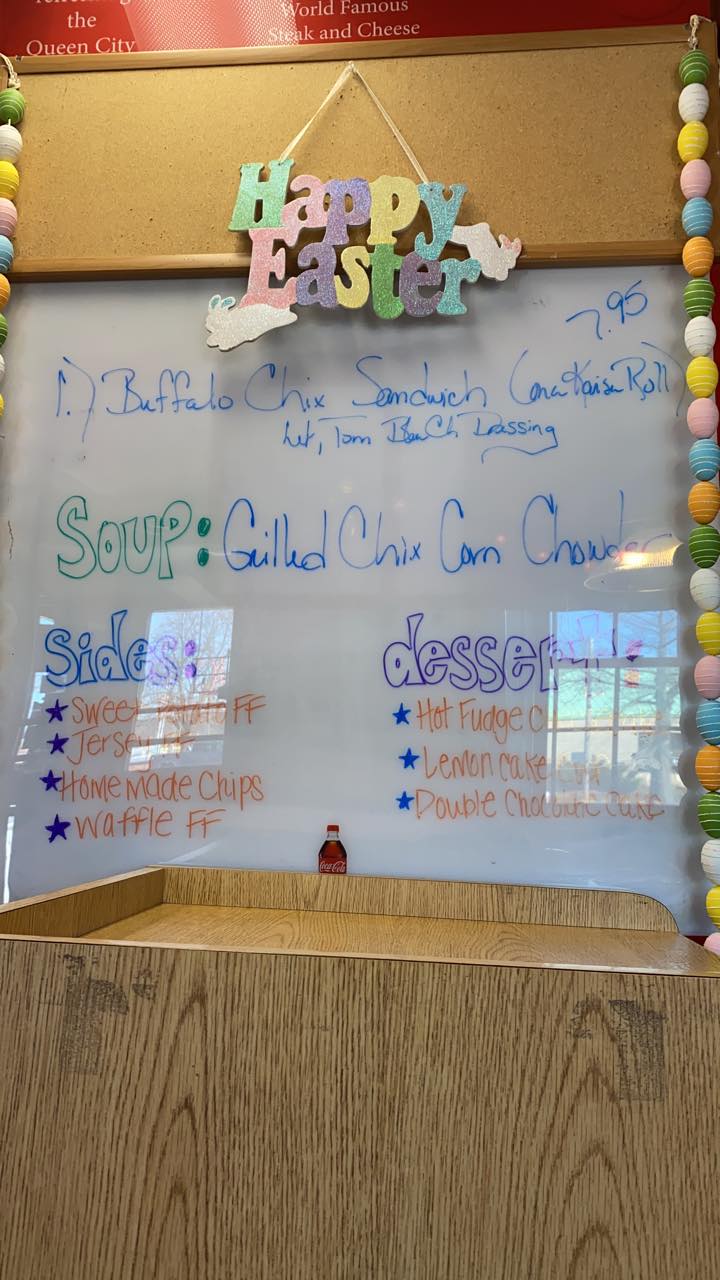 the
Queen City
World Famous
Steak and Cheese
Happy
Easter
7.95
1.) Buffalo Chix Sandwich (on a Kaiser Roll)
Let, Tom Dressing
Soup: Grilled Chix Corn Chowder
Sides:
Sweet Potato FF
Jersey FF
Homemade Chips
Waffle FF
dessert:
Hot Fudge
Lemon cake
Double Chocolate Cake
Coca-Cola